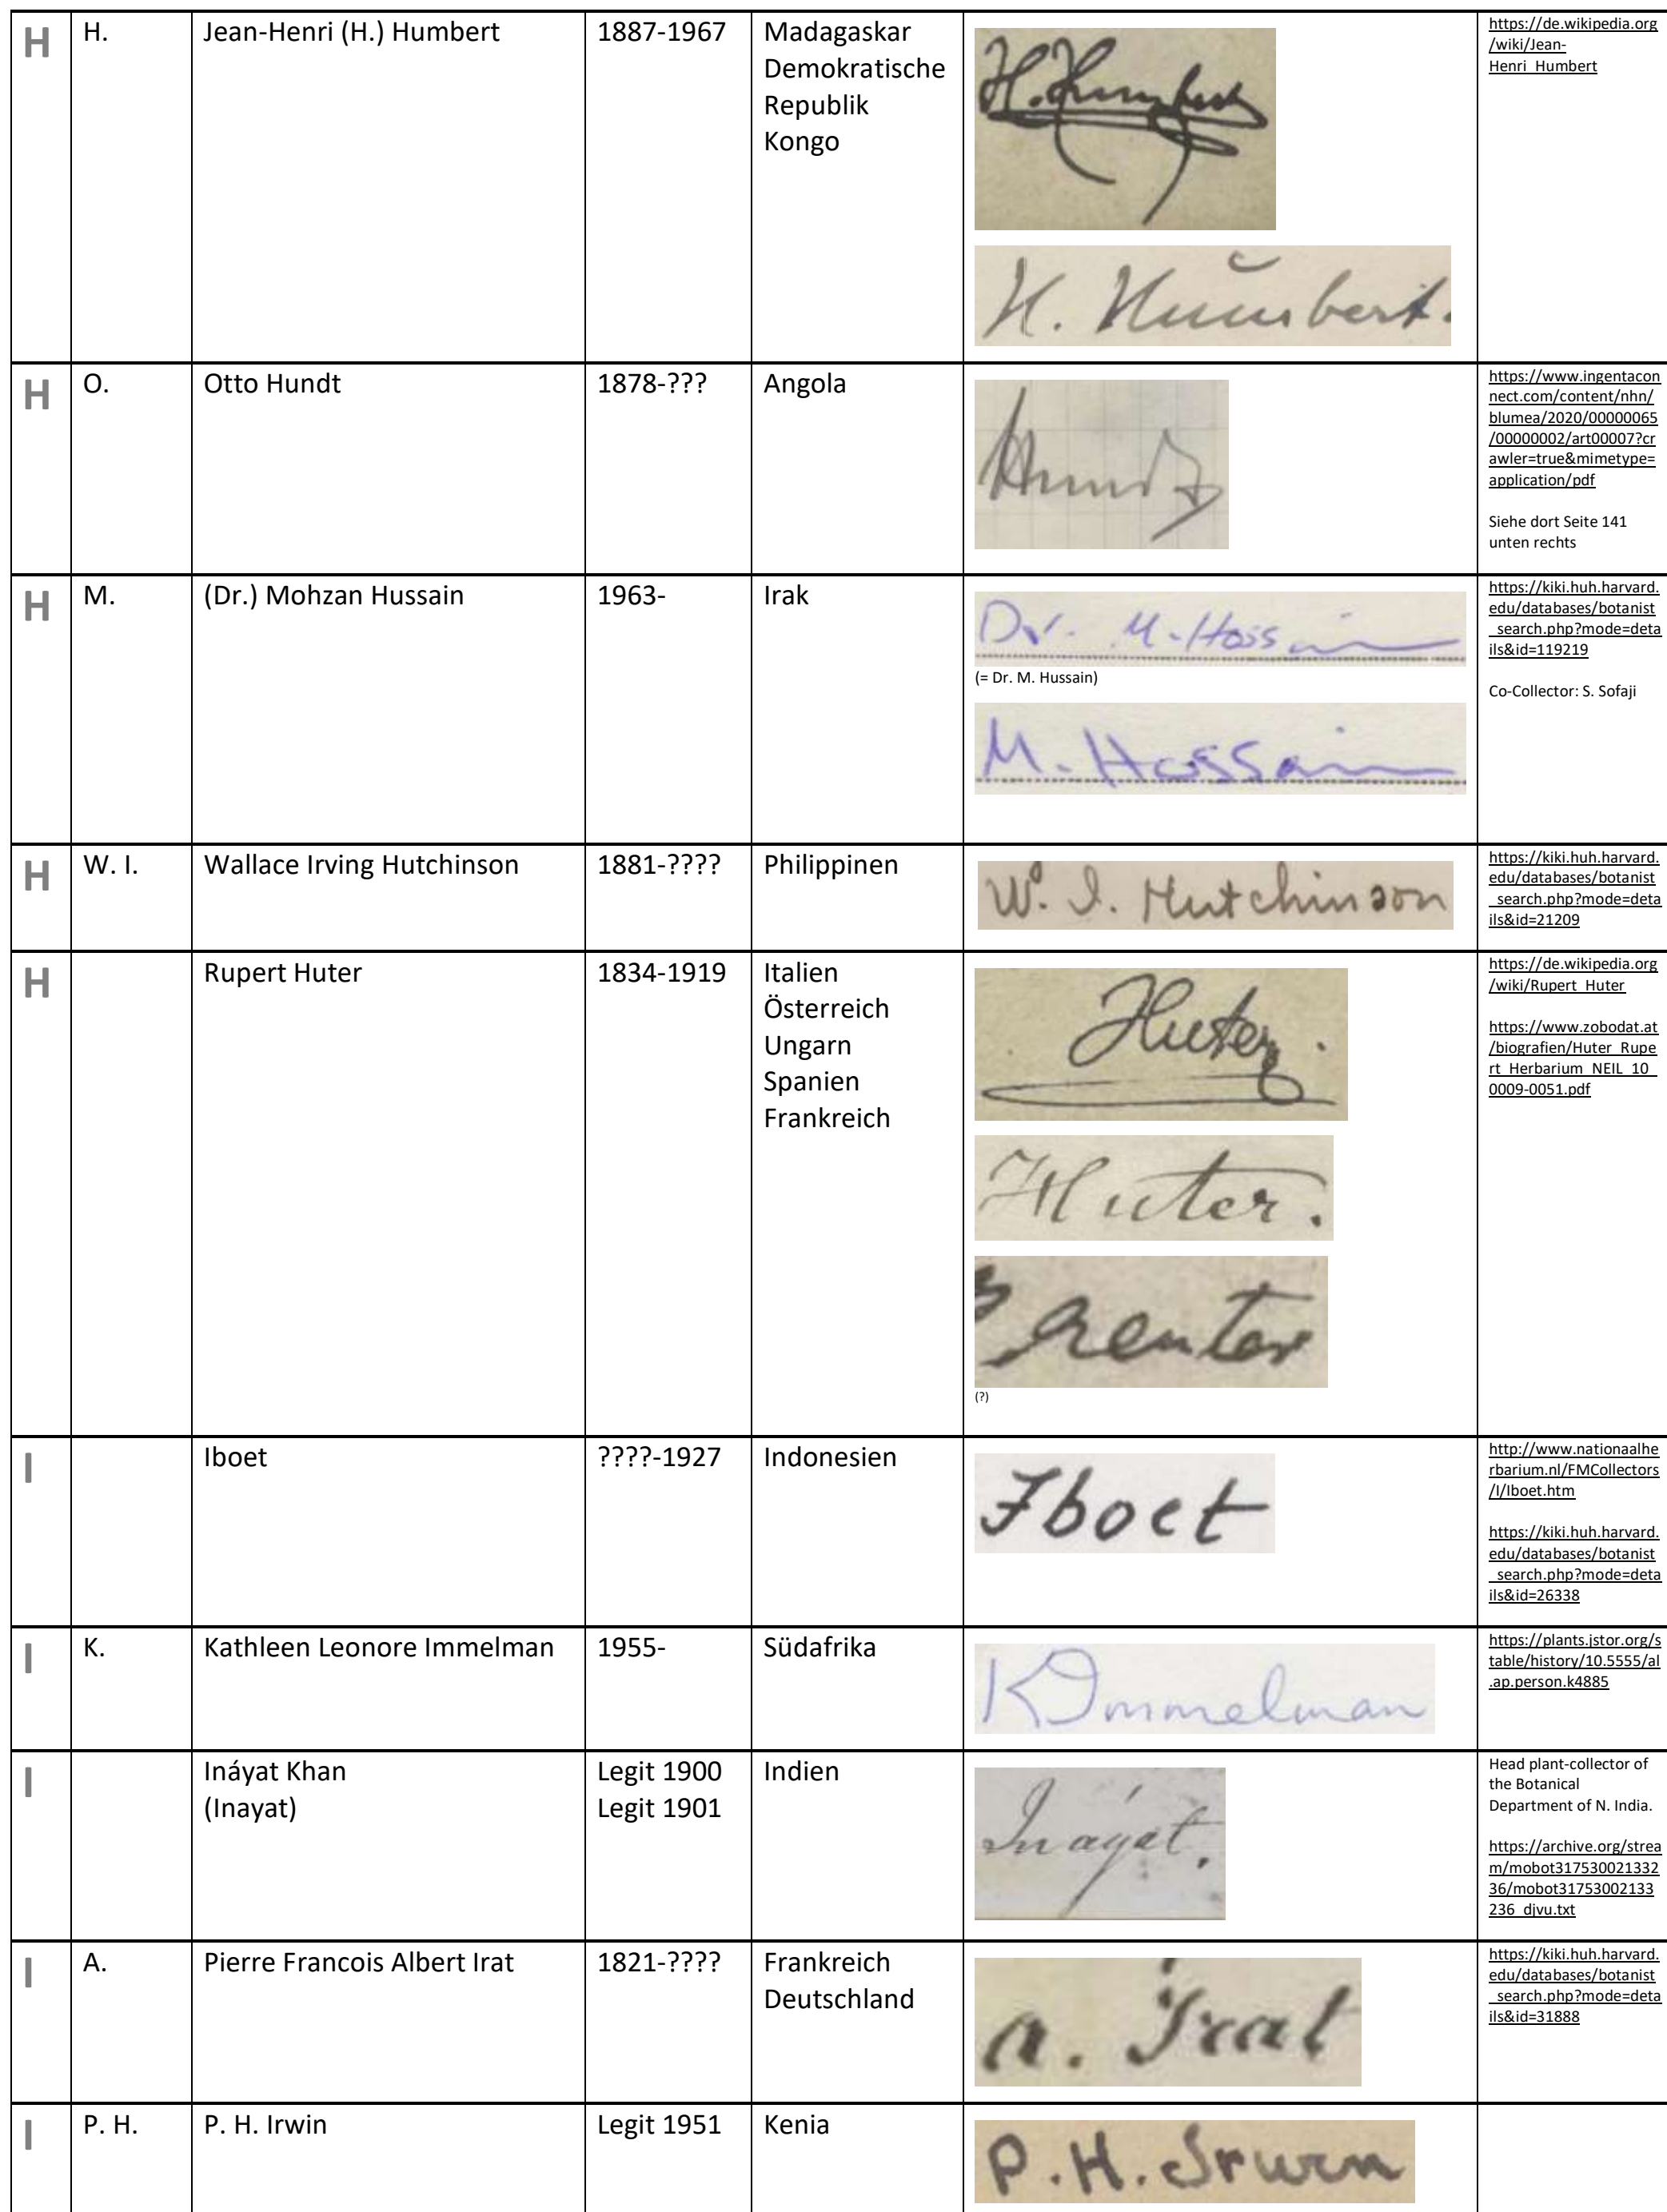 H
H.
Jean-Henri (H.) Humbert
1887-1967
Madagaskar
Demokratische
Republik
Kongo
H. Humbert
H. Humbert.
https://de.wikipedia.org
/wiki/Jean-
Henri_Humbert
H
O.
Otto Hundt
1878-???
Angola
Hundt
https://www.ingentacon
nect.com/content/nhn/
blumea/2020/00000065
/00000002/art00007?cr
awler=true&mimetype=
application/pdf
Siehe dort Seite 141
unten rechts
H
M.
(Dr.) Mohzan Hussain
1963-
Irak
Dr. M. Hossain
(= Dr. M. Hussain)
M. Hossain
https://kiki.huh.harvard.
edu/databases/botanist
_search.php?mode=deta
ils&id=119219
Co-Collector: S. Sofaji
H
W. I.
Wallace Irving Hutchinson
1881-????
Philippinen
W. I. Hutchinson
https://kiki.huh.harvard.
edu/databases/botanist
_search.php?mode=deta
ils&id=21209
H
Rupert Huter
1834-1919
Italien
Österreich
Ungarn
Spanien
Frankreich
Huter.
Huter.
(?)
https://de.wikipedia.org
/wiki/Rupert_Huter
https://www.zobodat.at
/biografien/Huter_Rupe
rt_Herbarium_NEIL_10_
0009-0051.pdf
I
Iboet
????-1927
Indonesien
Iboet
http://www.nationaalhe
rbarium.nl/FMCollectors
/I/Iboet.htm
https://kiki.huh.harvard.
edu/databases/botanist
_search.php?mode=deta
ils&id=26338
I
K.
Kathleen Leonore Immelman
1955-
Südafrika
K Immelman
https://plants.jstor.org/s
table/history/10.5555/al
.ap.person.k4885
I
Ináyat Khan
(Inayat)
Legit 1900
Legit 1901
Indien
Ináyat.
Head plant-collector of
the Botanical
Department of N. India.
https://archive.org/strea
m/mobot317530021332
36/mobot31753002133
236_djvu.txt
I
A.
Pierre Francois Albert Irat
1821-????
Frankreich
Deutschland
A. Irat
https://kiki.huh.harvard.
edu/databases/botanist
_search.php?mode=deta
ils&id=31888
I
P. H.
P. H. Irwin
Legit 1951
Kenia
P. H. Irwin